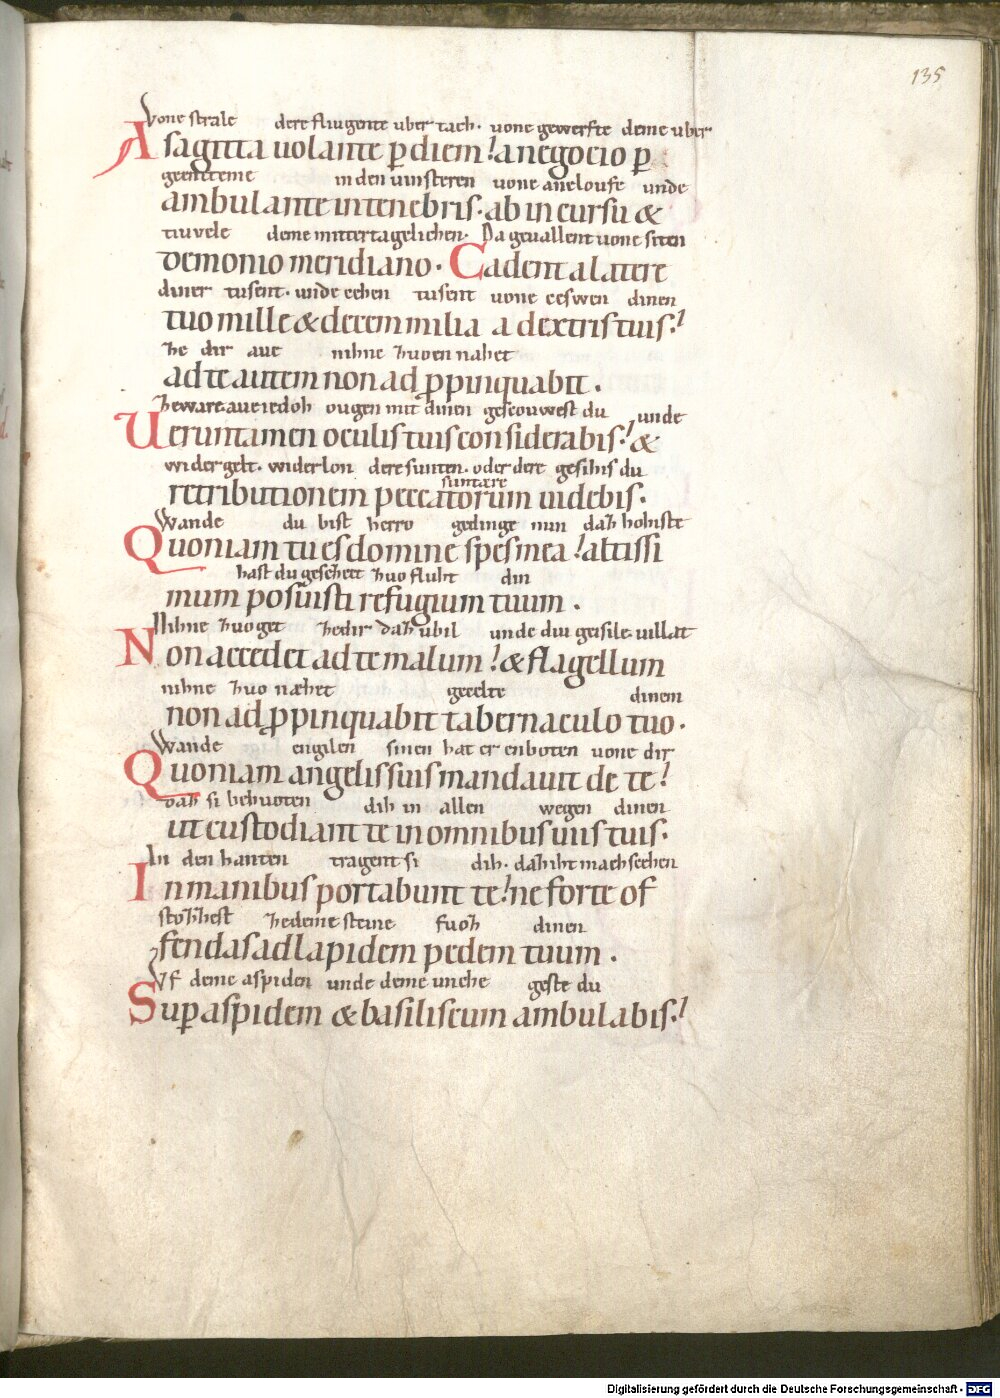 135
Vone strale dere fliugente uber tach. uone gewerfte deme uber
A sagitta uolante ꝑ diem! a negocio ꝑ
geenteme in den uinsteren uone aneloufe unde
ambulante in tenebris. ab incursu &
tiuvele deme mittertagelichen. Da geuallent uone siten
demonio meridiano. Cadent a latere
diner tusent. unde cehen tusent uone ceswen dinen
tuo mille & decem milia a dextris tuis!
ze dir aue nihne zuoen nahet
ad te autem non adꝓpinquabit.
zeware aue iedoh ougen mit dinen gescouwest du unde
Ueruntamen oculis tuis considerabis! &
widergelt. widerlon dere sunten. oder dere gesihis du
suntære
retributionem peccatorum uidebis.
Wande du bist herro gedinge min daz hohiste
Quoniam tu es domine spes mea! altissi
hast du gesehett zuo fluht din
mum posuisti refugium tuum.
Nihne zuo get zedir daz ubil unde diu geisile. uillat
Non accedet ad te malum! & flagellum
nihne zuo næhet gecelte dinem
non adꝓpinquabit tabernaculo tuo.
Wande engilen sinen hat er enboten vone dir
Quoniam angelis suis mandauit de te!
daz si behuoten dih in allen wegen dinen
ut custodiant te in omnibus uiis tuis.
In den hanten tragent si dih. daz iht mach scehen
In manibus portabunt te! ne forte of
stozzest zedeme steine fuoz dinen
fendas ad lapidem pedem tuum.
Vf deme aspiden unde deme unche geste du
Suꝑ aspidem & basiliscum ambulabis!
Digitalisierung gefördert durch die Deutsche Forschungsgemeinschaft - DFG